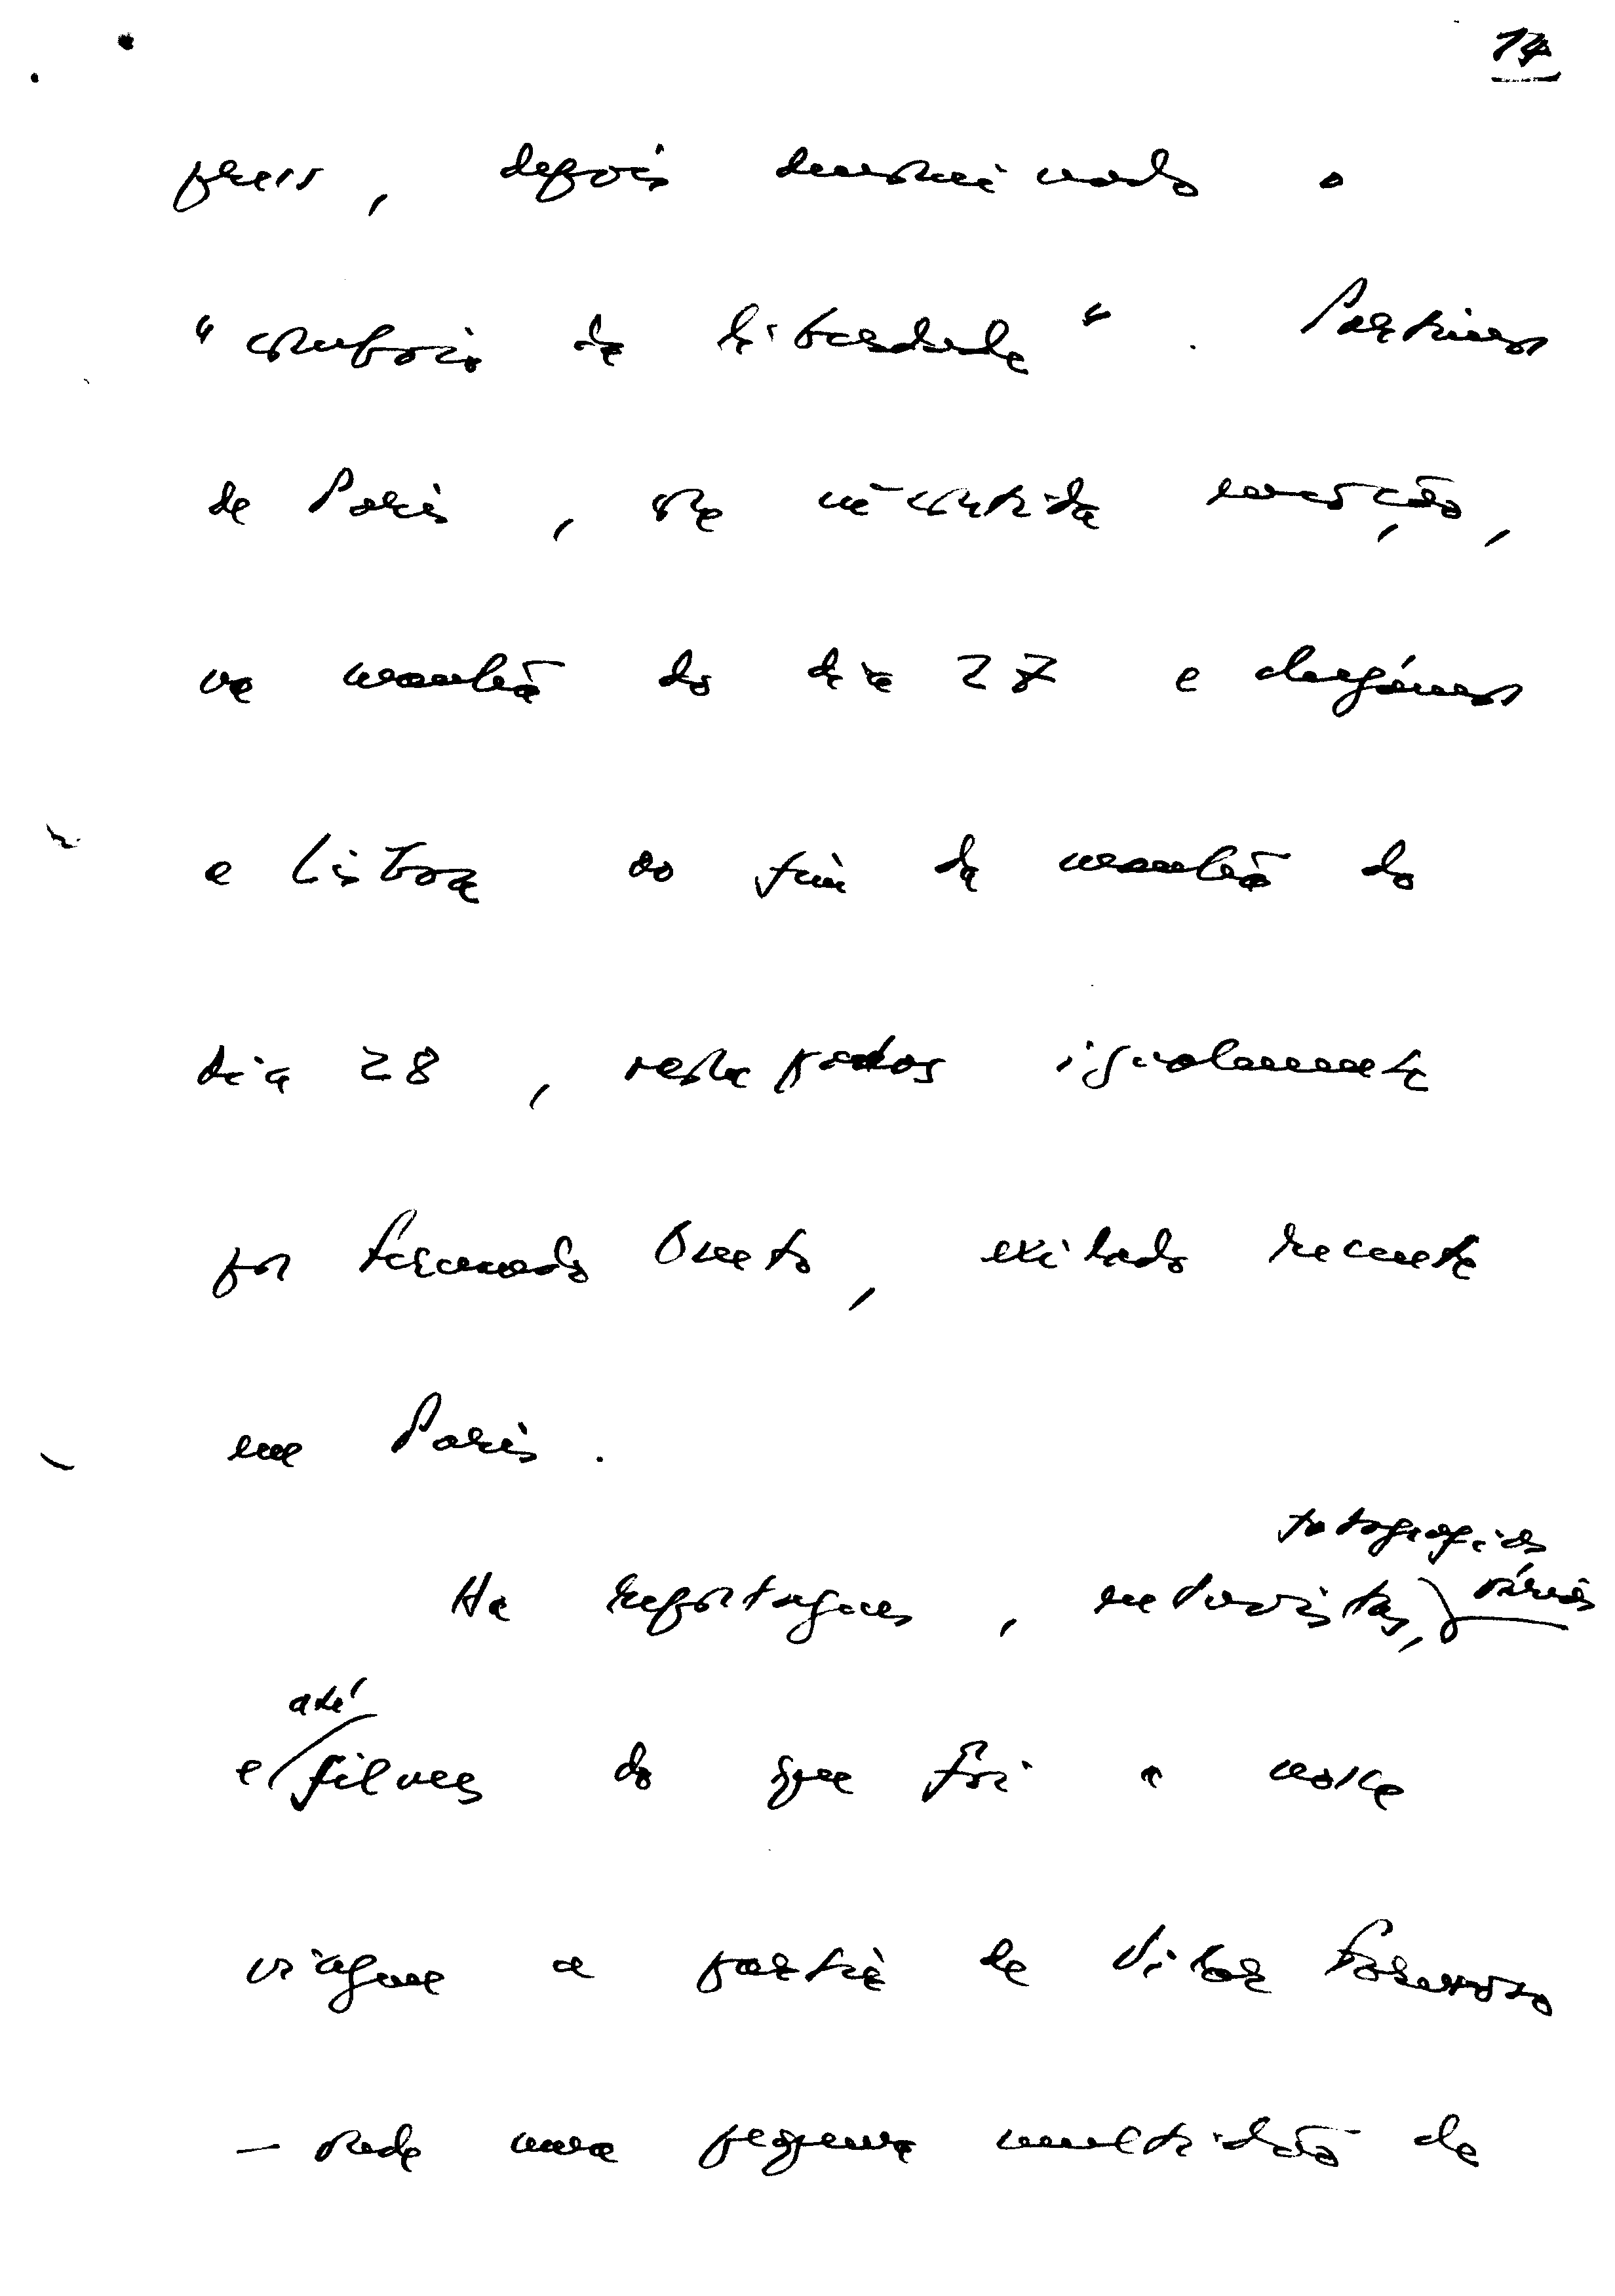 14
, depois denominado o
"comboio da liberdade". Partimos
de Paris, com incontida emoção,
na manhã do dia 27 e chegámos
a Lisboa ao fim da manhã do
dia 28, igualmente
por Fernando Oneto, exilado recente
em Paris.
Há reportagens, entrevistas, fotografias várias
e até filmes do que foi a nossa
viagem a partir de Vilar Formoso
– onde uma pequena multidão de